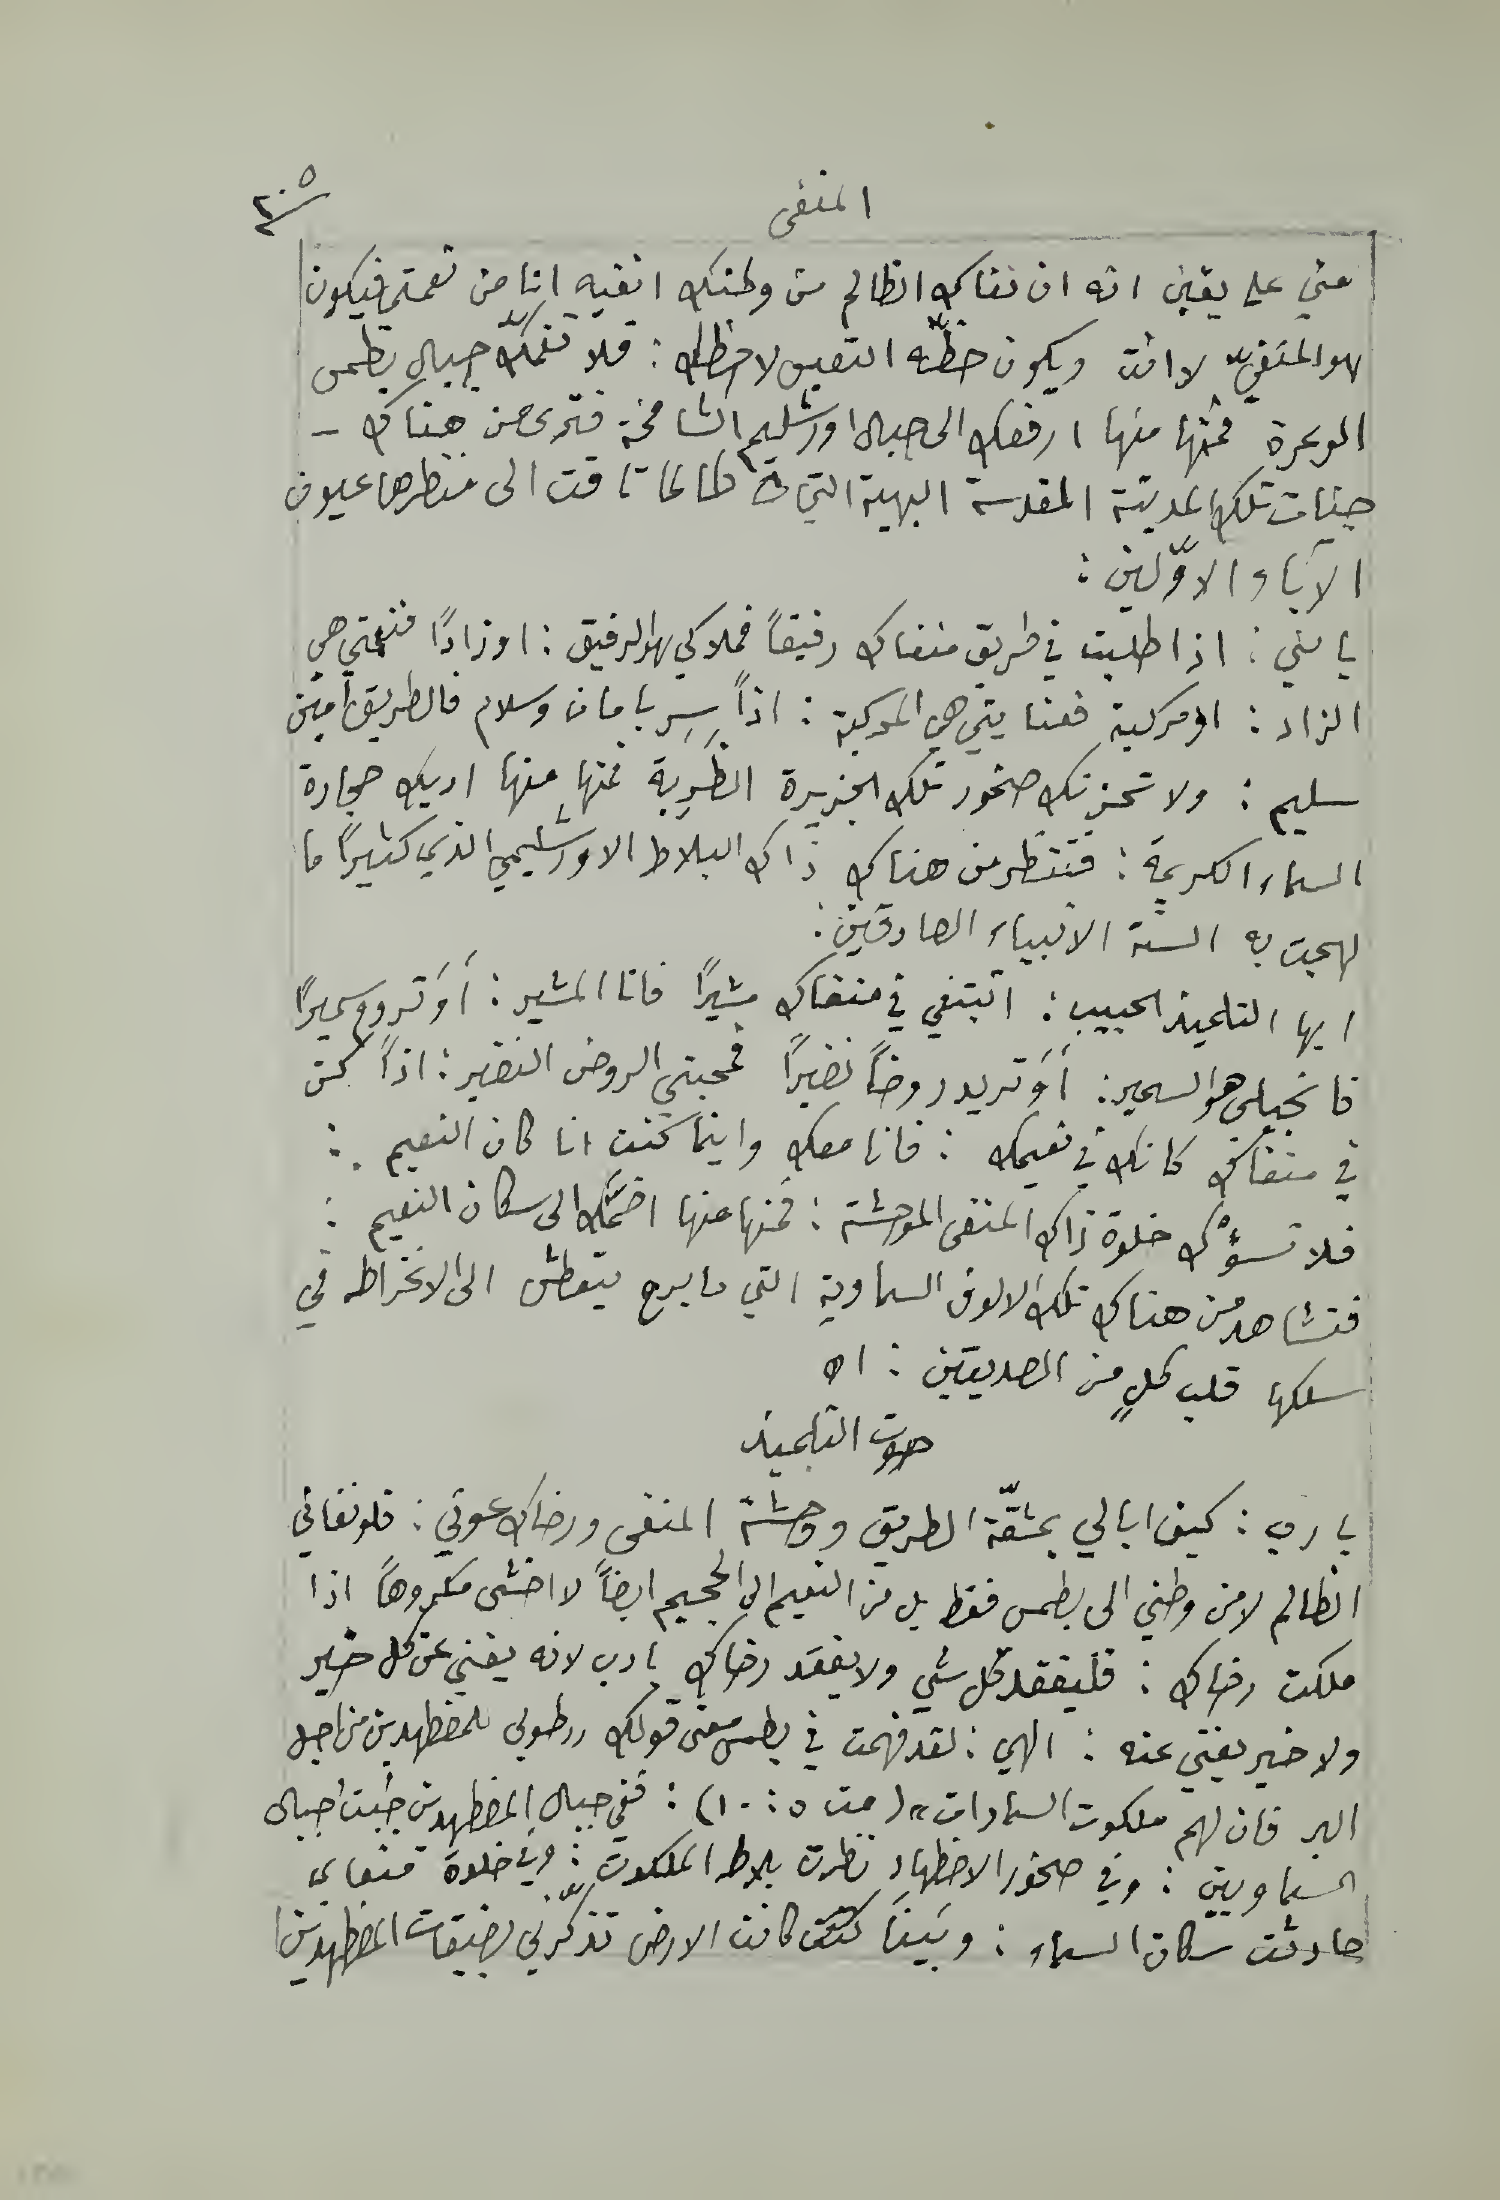 المنفى
٢٠٥
مني على يقين انه ان نفاك الظالم من وطنك انفيه انا من نعمتي فيكون
هو المنفيّ لا انت ويكون حظّه التعيس لا حظك : فلا تغمّك جبال بطمس
الوعرة فمنها منها ارفعك الى جبال اورشليم الشامخة فترى من هناك -
جنات تلك المدينة المقدسة البهية التي طالما تاقت الى منظرها عيون
الآباء الاوّلين :
يا بني : اذا طلبت في طريق منفاك رفيقاً فملاكي هو الرفيق : او زادًا فنعمتي هي
الزاد : او مركبة فعنايتي هي المركبة : اذاً سِر بامان وسلام فالطريق امين
سليم : ولا تحزنك صخور تلك الجزيرة الظَرِبة فمنها منها اريك حجارة
السماء الكريمة : فتنظر من هناك ذاك البلاط الاورشليمي الذي كثيرًا ما
لهجت به السنة الانبياء الصادقين :
ايها التلميذ الحبيب : اتبتغي في منفاك مشيرًا فانا المشير : أوَ تروم سميرًا
فانجيلي هو السمير : أوَ تريد روضاً نضيرًا فمحبتي الروض النضير : اذاً كن
في منفاك كانك في نعيمك : فانا معك واينما كنت انا كان النعيم :
فلا تسؤْك خلوة ذاك المنفى الموحشة : فمنها منها اضمّك الى سكان النعيم :
فتشاهد من هناك تلك الالوف السماوية التي ما برح يتعطش الى الانخراط في
سلكها قلب كلٍ من الصديقين : اه
صوت التلميذ
يا رب : كيف ابالي بمشقّة الطريق ووحشة المنفى ورضاك عوني : فلو نفاني
الظالم لا من وطني الى بطمس فقط بل من النعيم الى الجحيم ايضاً لا اخشى مكروهاً اذا
ملكت رضاك : فليفقد كل شي ولا يفقد رضاك يا رب لانه يغني عن كل خير
ولا خير يغني عنه : الهي : لقد فهمت في بطمس معنى قولك "طوبى للمضطهدين من اجل
البر فان لهم ملكوت السماوات" (مت ٥ : ١٠) : ففي جبال المضطهدين جُبت جبال
السماويين : وفي صخور الاضطهاد نظرت بلاط الملكوت : وفي خلوة منفاي
حادثت سكان السماء : وبينَا كانت الارض تذكّرني بضيقات المضطهدين